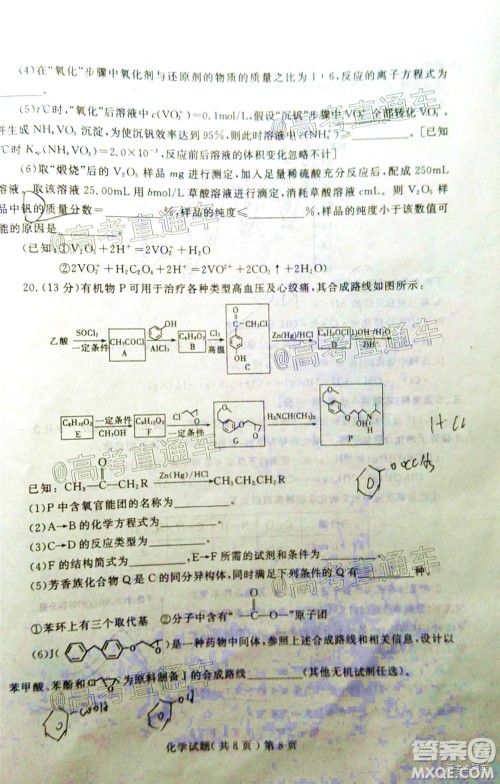 (4)在“氧化”步骤中氧化剂与还原剂的物质的质量之比为1∶6,反应的离子方程式为
。
(5)t℃时,“氧化”后溶液中c(VO₂⁺)=0.1mol/L,假设“沉钒”步骤中VO₂⁺全部转化
并生成NH₄VO₃沉淀,为使沉钒效率达到95%,则此时c(NH₄⁺)= 。[已知
t℃时Ksp(NH₄VO₃)=2.0×10⁻³,反应前后溶液的体积变化忽略不计]
(6)取“煅烧”后的V₂O₅样品mg进行测定,加足量稀硫酸充分反应后,配成250mL
溶液,取该溶液25.00mL用bmol/L草酸溶液进行滴定,消耗草酸溶液amL,则V₂O₅
品中钒的质量分数= %,样品的纯度≤ %,样品纯度小于该数值可
能的原因是 。
(已知:①V₂O₅+2H⁺=2VO₂⁺+H₂O
②2VO₂⁺+H₂C₂O₄+2H⁺=2VO²⁺+2CO₂↑+2H₂O)
20.(13分)有机物P可用于治疗各种类型高血压及心绞痛,其合成路线如图所示:
乙酸 SOCl₂ 一定条件 CH₃COCl A OH AlCl₃ C₈H₈O₂ B HCl 高温 O CH₂Cl OH C Zn(Hg)/HCl D
E 一定条件 CH₃OH F Cl O G H₂NCH(CH₃)₂ P
已知:CH₃—C—CH₂R Zn(Hg)/HCl CH₃CH₂CH₂R
(1)P中含氧官能团的名称为 。
(2)A→B的化学方程式为 。
(3)C→D的反应类型为 。
(4)F的结构简式为 ,E→F所需的试剂和条件为 。
(5)芳香族化合物Q是C的同分异构体,同时满足下列条件的Q有 种。
①苯环上有三个取代基 ②分子中含有“—C—O—”原子团
(6)J( )是一种药物中间体,参照上述合成路线和相关信息,设计以
苯甲酸、苯酚和Cl 为原料制备J的合成路线 (其他无机试剂任选)。
化学试题(共8页)第8页
@高考直通车
答案圈
MXQE.COM